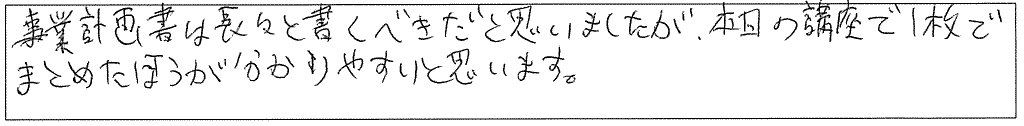 事業計画書は長々と書くべきだと思いましたが、本日の講座で1枚で
まとめたほうが分かりやすいと思います。